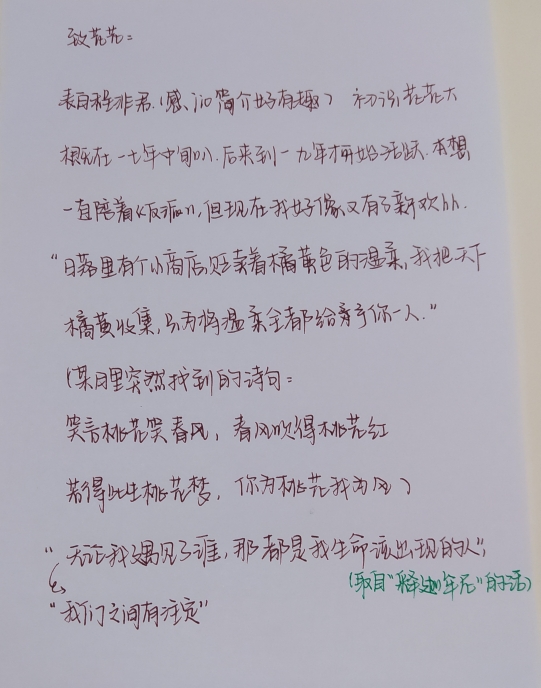 致花花：
表白程非君.(感jio简介好有趣) 初识花花大
概是在一七年中旬叭.后来到一九年才开始活跃.本想
一直陪着《》,但现在我好像又有了新欢hh.
"日落里有个小商店,贩卖着橘黄色的温柔,我把天下
橘黄收集,只为将温柔全都给予你一人."
(某日里突然找到的诗句:
笑言桃花笑春风，春风吹得桃花红
若得此生桃花梦，你为桃花我为风)
"无论我遇见了谁，那都是我生命该出现的人";
(取自"释迦牟尼"的话)
"我们之间有注定"